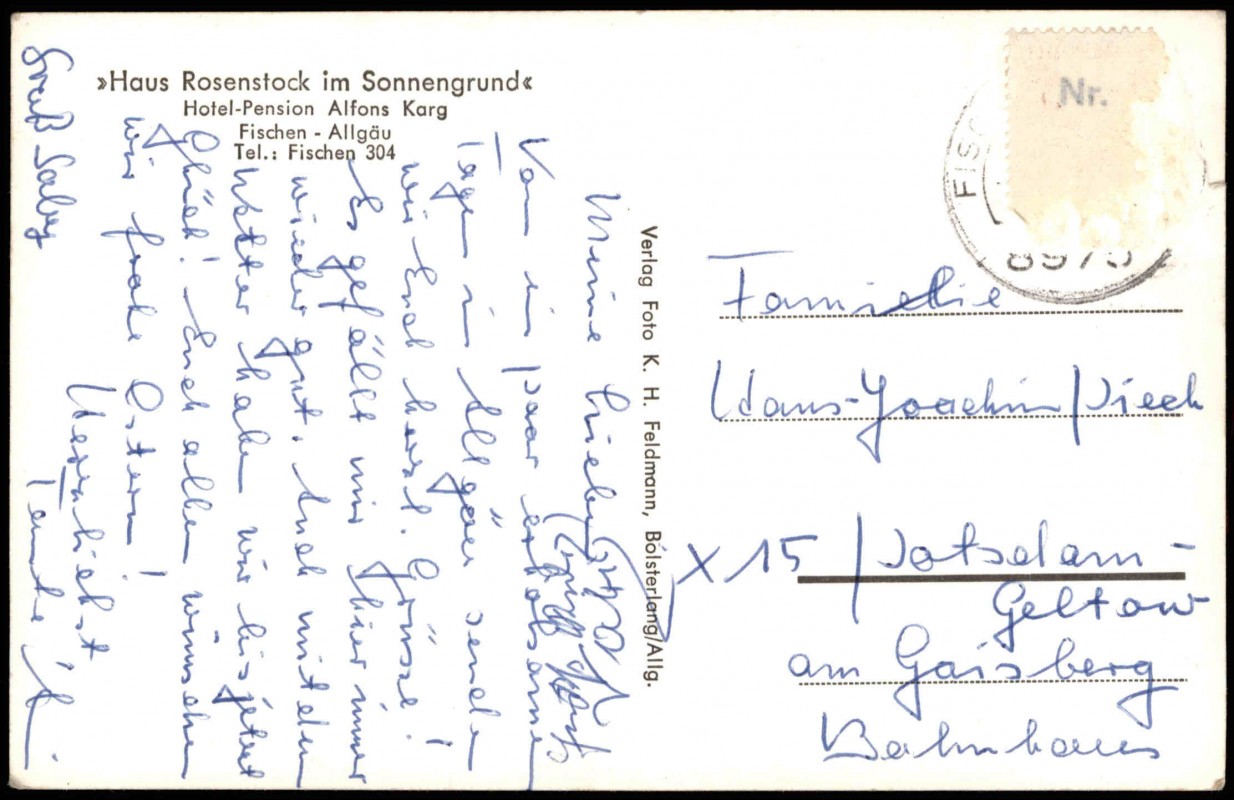 »Haus Rosenstock im Sonnengrund«
Hotel-Pension Alfons Karg
Fischen - Allgäu
Tel.: Fischen 304
Meine Lieben
Von ein paar erholsamen
Tagen im Allgäu sende
ich Euch herzl. Grüsse!
Es gefällt mir hier immer
wieder gut. Auch mit dem
Wetter haben wir bisjetzt
Glück! Euch allen wünschen
wir frohe Ostern!
Herzlichst
Tante
Gruß Gaby
Verlag Foto K. H. Feldmann, Bolsterlang/Allg.
Nr.
FISC
8975
Familie
Hans-Joachim Pieck
X 15 Potsdam-
Geltow
am Gaisberg
Bahnhaus